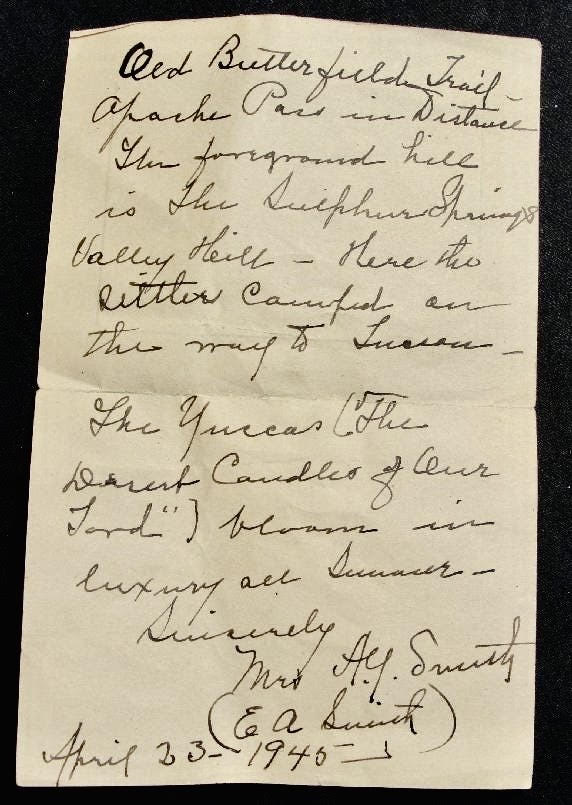 Old Butterfield Trail -
Apache Pass in Distance
The foreground hill
is The Sulphur Springs
Valley Hill - Here the
settler camped on
the way to Tucson -
The Yuccas ("The
Desert Candles of Our
Lord") bloom in
luxury all Summer -
Sincerely
Mrs A.Y. Smith
(E A Smith)
April 23 - 1945 -